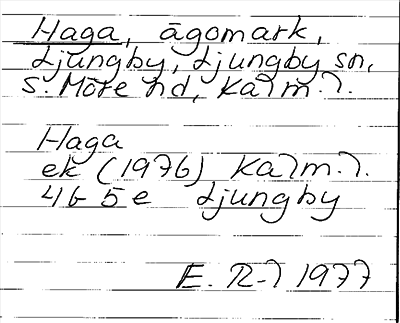 Haga, ägomark,
Ljungby, Ljungby sn,
S. Möre hd, Kalm. l.
Haga
ek (1976) Kalm. l.
4G 5e Ljungby
E. R-l 1977